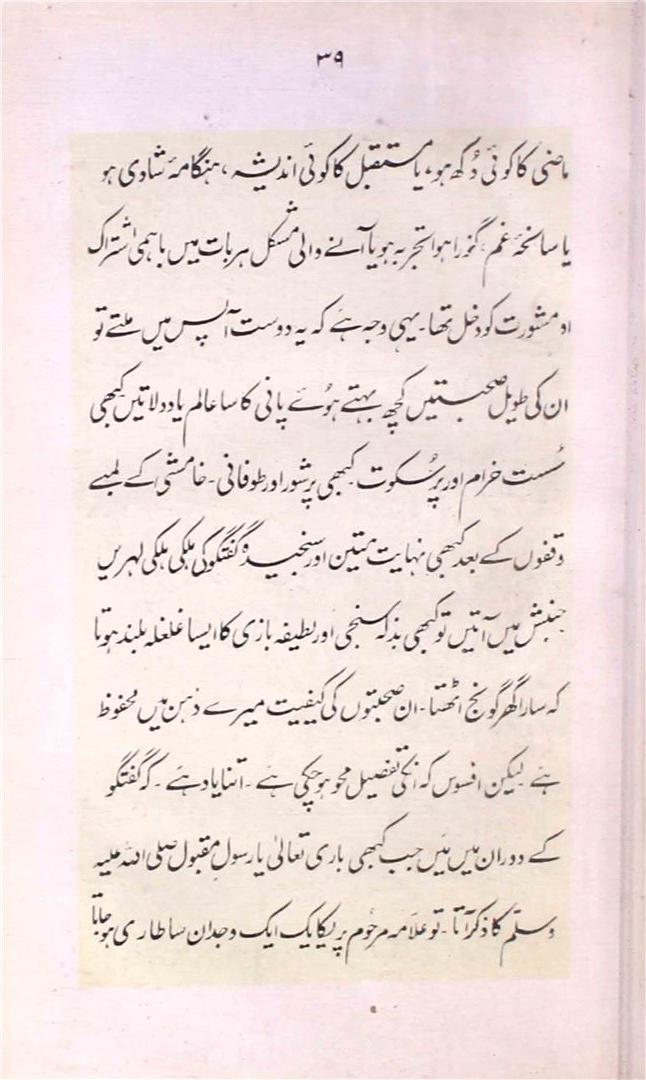 ۳۹
ماضی کا کوئی دُکھ ہو، یا مستقبل کا کوئی اندیشہ، ہنگامۂ شادی ہو
یا سانحۂ غم، گزرا ہوا تجربہ ہو یا آنے والی مشکل ہر بات میں باہمی اشتراک
او مشورت کو دخل تھا۔ یہی وجہ ہے کہ یہ دوست آپس میں ملتے تو
ان کی طویل صحبتیں کچھ بہتے ہوُئے پانی کا سا عالم یاد دلاتیں کبھی
سُست خرام اور پُرسکوت کبھی پُرشور اور طوفانی۔ خامشی کے لمبے
وقفوں کے بعد کبھی نہایت متین اور سنجیدہ گفتگو کی ہلکی ہلکی لہریں
جنبش میں آتیں تو کبھی بذلہ سنجی اور لطیفہ بازی کا ایسا غلغلہ بلند ہوتا
کہ سارا گھر گونج اٹھتا۔ ان صحبتوں کی کیفیت میرے ذہن میں محفوظ
ہے لیکن افسوس کہ انکی تفصیل محو ہو چکی ہے۔ اتنا یاد ہے۔ کہ گفتگو
کے دوران میں مَیں جب کبھی باری تعالیٰ یا رسولِ مقبول صلی اللہ علیہ
وسلّم کا ذکر آتا۔ تو علّامہ مرحوُم پر یکایک ایک وجدان سا طاری ہو جاتا